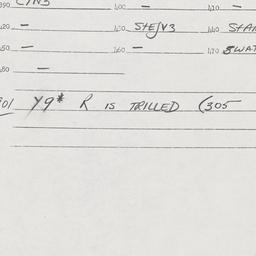 390 — 400 — 410 —
420 — 430 STEJV3 440 STAR
450 — 460 — 470 SWAT
480 —
901 Y9* R IS TRILLED (305